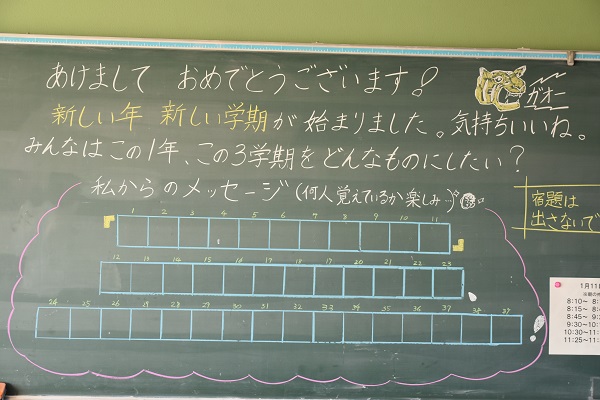 あけまして おめでとうございます！
ガオー
新しい年 新しい学期が 始まりました。気持ちいいね。
みんなはこの1年、この3学期をどんなものにしたい？
私からのメッセージ(何人覚えているか楽しみ…)
宿題は
出さないで
1 2 3 4 5 6 7 8 9 10 11
12 13 14 15 16 17 18 19 20 21 22 23
24 25 26 27 28 29 30 31 32 33 34 35 36 37 38 39
1月11
8:10～ 8:
8:15～ 8:
8:45～ 9:
9:30～10:
10:30～11:
11:25～11: